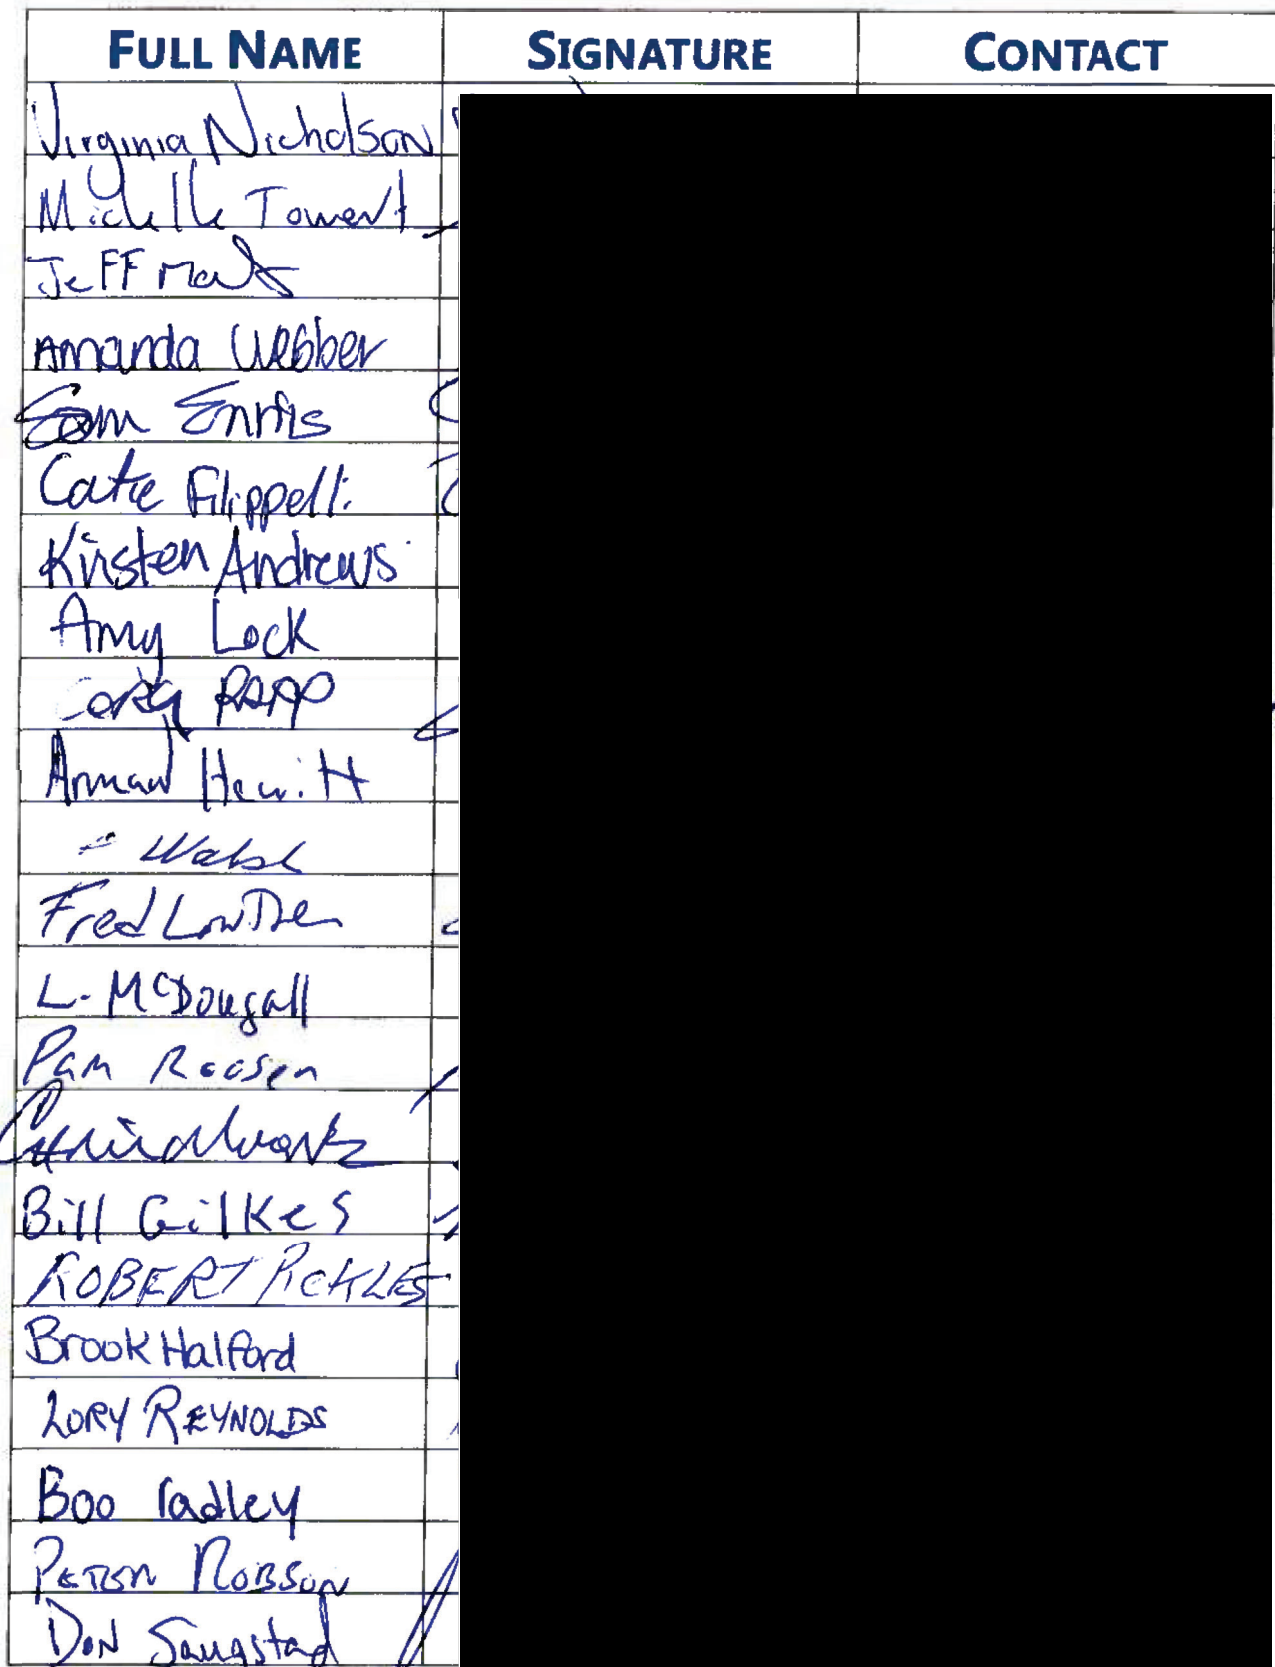 FULL NAME SIGNATURE CONTACT
Virginia Nicholson
Michelle Towert
Jeff
Amanda Webber
Sam Ennis
Catie Filippelli
Kirsten Andrews
Amy Lock
Cory RAPP
Armand Hewitt
Walsh
Fred Lowther
L. McDougall
Pam Roosen
Bill Gilkes
ROBERT PICKLES
Brook Halford
LORY REYNOLDS
Boo radley
PETER ROBSON
DON Saugstad